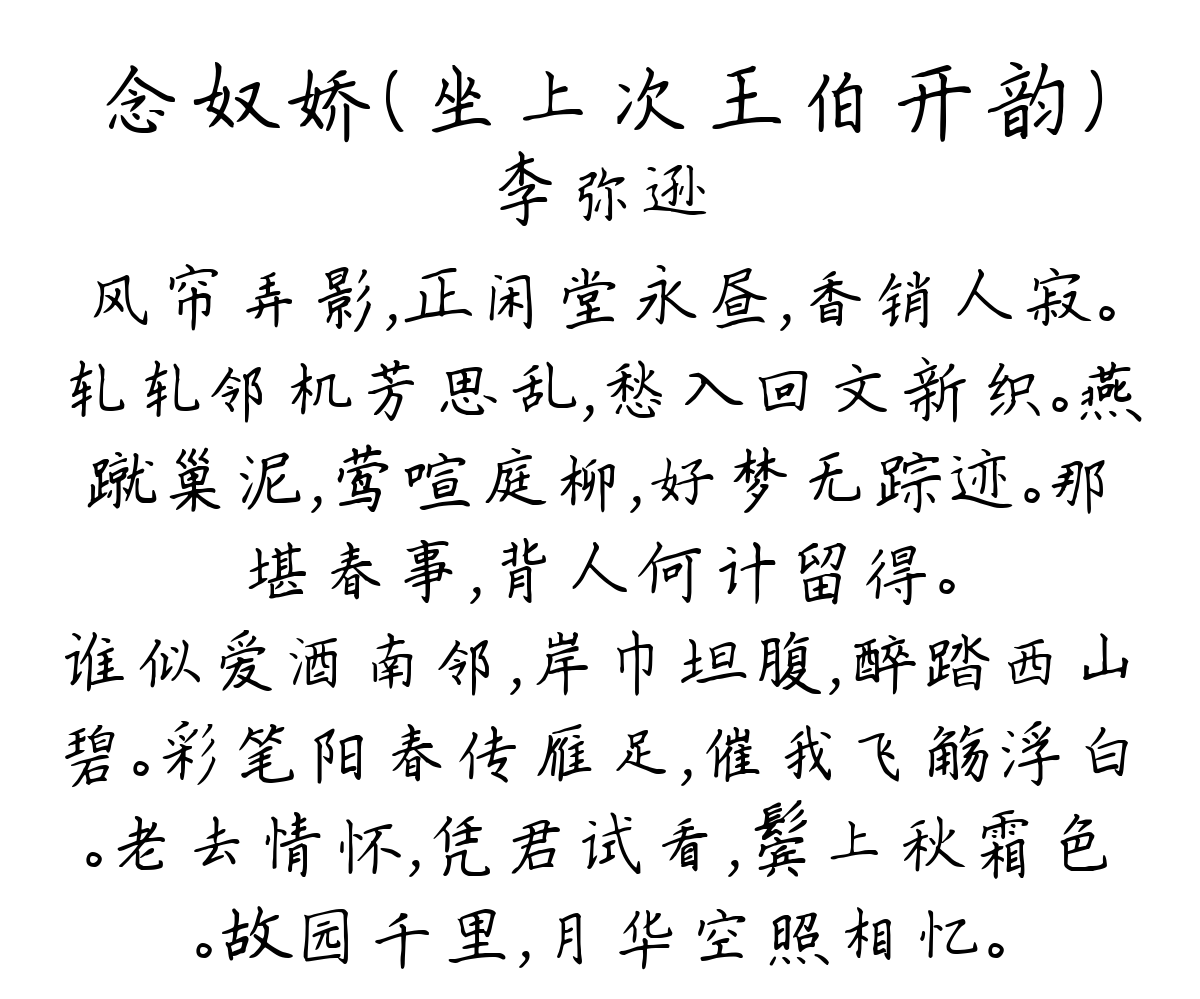 念奴娇(坐上次王伯开韵)
李弥逊
风帘弄影,正闲堂永昼,香销人寂。
轧轧邻机芳思乱,愁入回文新织。燕
蹴巢泥,莺喧庭柳,好梦无踪迹。那
堪春事,背人何计留得。
谁似爱酒南邻,岸巾坦腹,醉踏西山
碧。彩笔阳春传雁足,催我飞觞浮白
。老去情怀,凭君试看,鬓上秋霜色
。故园千里,月华空照相忆。